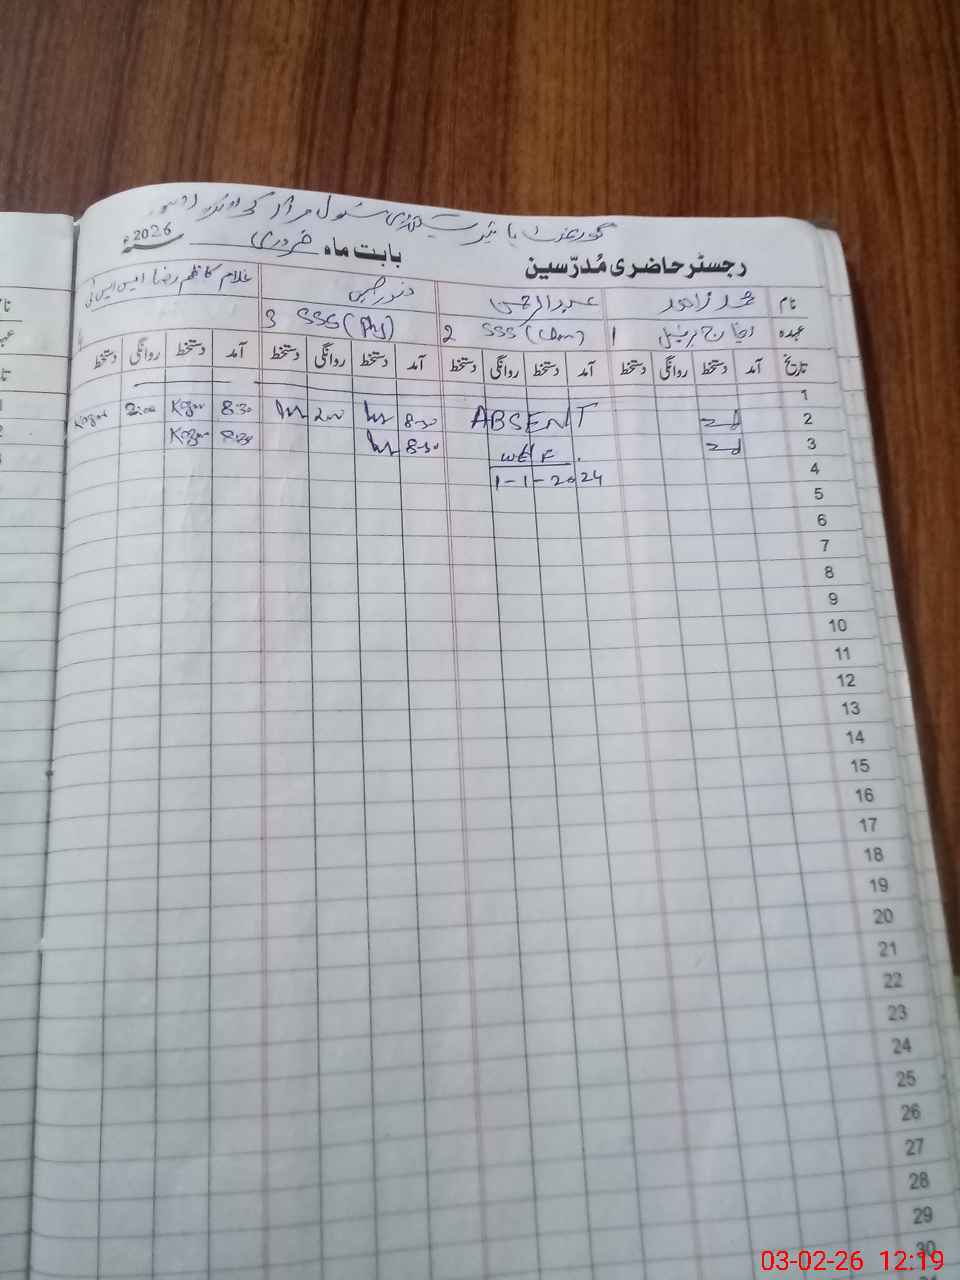 گورنمنٹ ہائیر سیکنڈری سکول
رجسٹر حاضری مُدرّسین بابت ماہ فروری 2026ء
نام محمد زاہد عبدالرحمن غلام کاظم رضا ایس ایس ٹی
عہدہ انچارج پرنسپل 1 SSS (Chem) 2 SSS (Phy) 3
تاریخ آمد دستخط روانگی دستخط آمد دستخط روانگی دستخط آمد دستخط روانگی دستخط آمد دستخط روانگی دستخط
1
2 ABSENT 8:30 200 8:30
3 W E F 8:30 8:30
4 1-1-2024
5
6
7
8
9
10
11
12
13
14
15
16
17
18
19
20
21
22
23
24
25
26
27
28
29
30
03-02-26 12:19